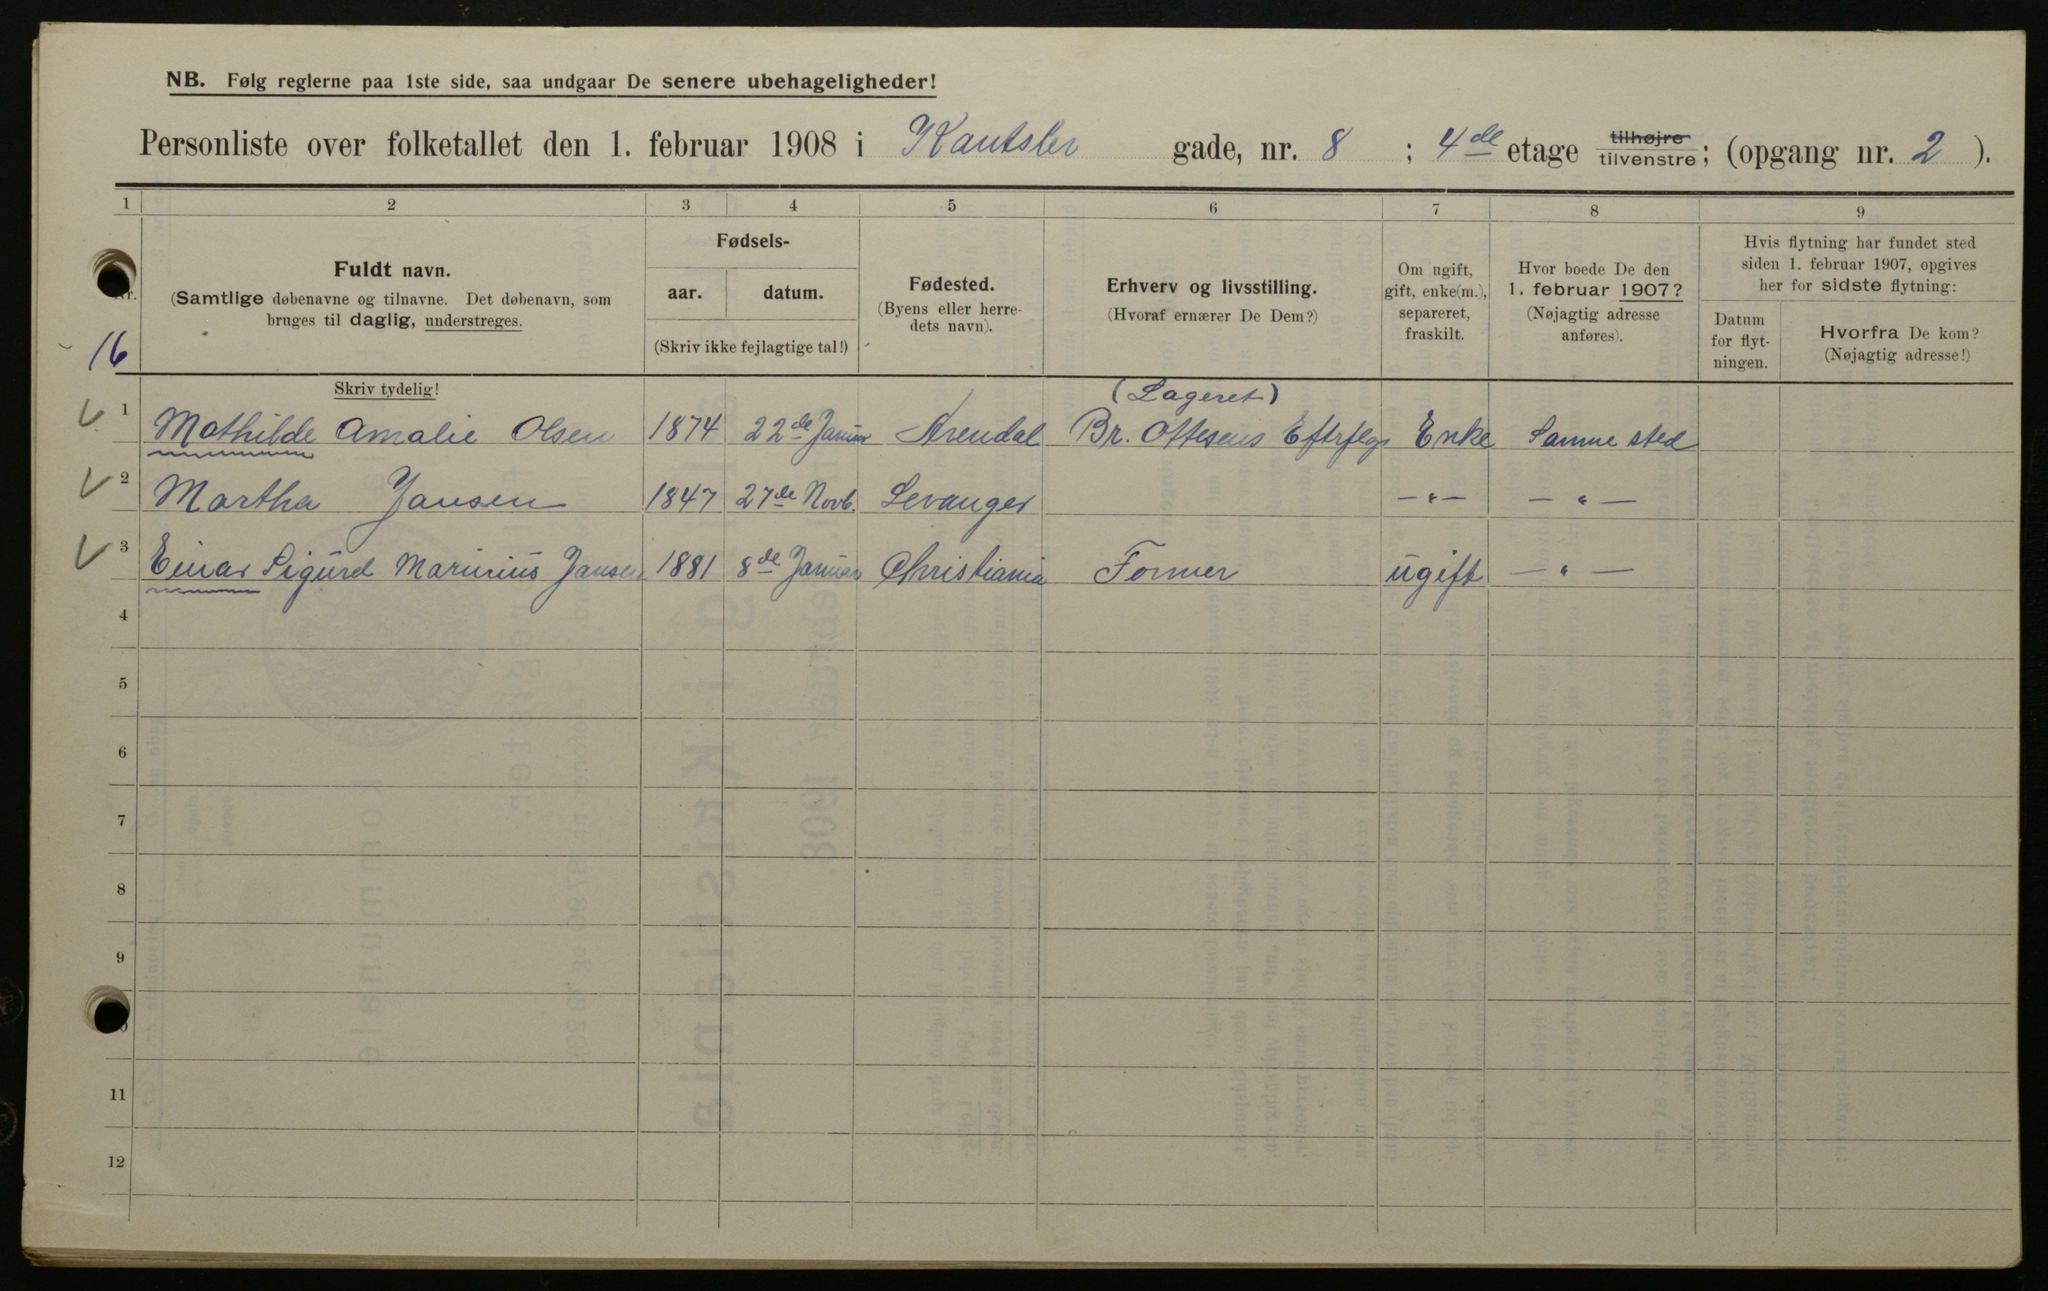 NB. Følg reglerne paa 1ste side, saa undgaar De senere ubehageligheder!
Personliste over folketallet den 1. februar 1908 i Kantsler gade, nr. 8 ; 4de etage tilhøjre tilvenstre; (opgang nr. 2 ).
1 2 3 4 5 6 7 8 9
Nr.
16
Fuldt navn.
(Samtlige døbenavne og tilnavne. Det døbenavn, som
bruges til daglig, understreges.
Skriv tydelig!
Fødsels-
aar. datum.
(Skriv ikke fejlagtige tal!)
Fødested.
(Byens eller herre-
dets navn).
Erhverv og livsstilling.
(Hvoraf ernærer De Dem?)
Om ugift,
gift, enke(m.),
separeret,
fraskilt.
Hvor boede De den
1. februar 1907?
(Nøjagtig adresse
anføres).
Hvis flytning har fundet sted
siden 1. februar 1907, opgives
her for sidste flytning:
Datum
for flyt-
ningen.
Hvorfra De kom?
(Nøjagtig adresse!)
(Lageret)
1 Mathilde Amalie Olsen 1874 22de Januar Arendal Br. Ottesens Eftrflgs Enke Samme sted
2 Martha Jansen 1847 27de Novb. Levanger —"— — " —
3 Einar Sigurd Marinius Jansen 1881 8de Januar Christiania Former ugift — " —
4
5
6
7
8
9
11
12